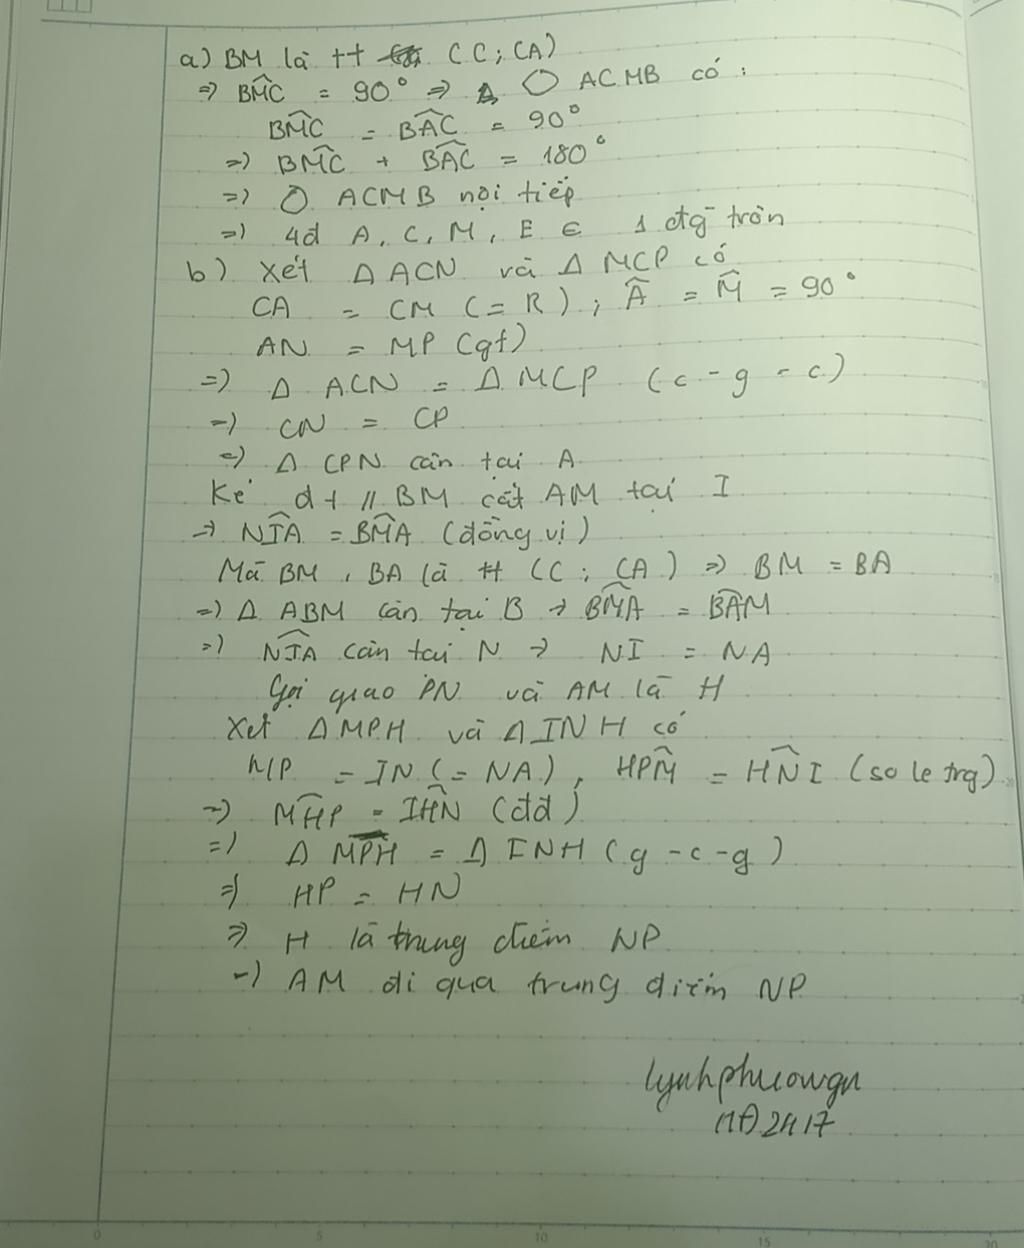 a) BM là tt (C; CA)
=> BMC = 90° => ACMB có:
BMC = BAC = 90°
=> BMC + BAC = 180°
=> ACMB nội tiếp
=> 4đ A, C, M, E ∈ 1 đtg tròn
b) Xét Δ ACN và Δ MCP có
CA = CM (= R); A = M = 90°
AN = MP (gt)
=> Δ ACN = Δ MCP (c - g - c)
=> CN = CP
=> Δ CPN cân tại A
Kẻ dt // BM cắt AM tại I
=> NIA = BMA (đồng vị)
Mà BM, BA là tt (C; CA) => BM = BA
=> Δ ABM cân tại B => BMA = BAM
=> NIA cân tại N => NI = NA
Gọi giao PN và AM là H
Xét Δ MPH và Δ INH có
MP = IN (= NA), HPM = HNI (so le trg)
=> MHP = IHN (đđ)
=> Δ MPH = Δ INH (g - c - g)
=> HP = HN
=> H là trung điểm NP
=> AM đi qua trung điểm NP
lynhphuowgn